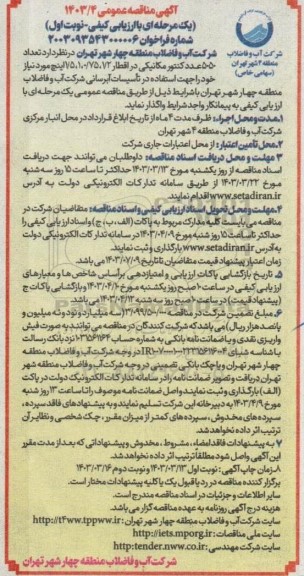 آگهی مناقصه عمومی ۱۴۰۳/۴
(یک مرحله ای با ارزیابی کیفی-نوبت اول)
شماره فراخوان ۲۰۰۳۰۹۳۵۴۳۰۰۰۰۰۶
شرکت آب و فاضلاب
منطقه ۴ شهر تهران
(سهامی خاص)
شرکت آب و فاضلاب منطقه چهار شهر تهران در نظر دارد تعداد
۵۰۵ عدد کنتور مکانیکی در اقطار ۱/۵،۱۰۰/۷۵،۷۲ اینچ مورد نیاز
خود را جهت استفاده در تأسیسات آبرسانی شرکت آب و فاضلاب
منطقه چهار شهر تهران با شرایط ذیل از طریق مناقصه عمومی یک مرحله ای با
ارزیابی کیفی به پیمانکار واجد شرایط واگذار نماید.
۱. مدت و محل اجراء: ظرف مدت ۴ ماه از تاریخ ابلاغ قرارداد در محل انبار مرکزی
شرکت آب و فاضلاب منطقه ۴ شهر تهران
۲. محل تأمین اعتبار: از محل اعتبارات جاری شرکت
۳. مهلت و محل دریافت اسناد مناقصه: داوطلبان می توانند جهت دریافت
اسناد مناقصه از روز یکشنبه مورخ ۱۴۰۳/۰۳/۱۳ حداکثر تا ساعت ۱۵ روز سه شنبه
مورخ ۱۴۰۳/۰۳/۲۲ از طریق سامانه تدارکات الکترونیکی دولت به آدرس
www.setadiran.ir اقدام نمایند.
۴. مهلت و محل تحویل اسناد ارزیابی کیفی و اسناد مناقصه: متقاضیان شرکت در
مناقصه می بایست کلیه مدارک مربوط به پاکات (الف، ب، ج) و اسناد ارزیابی کیفی را
حداکثر تا ساعت ۱۵ روز شنبه مورخ ۱۴۰۳/۰۴/۰۹ در سامانه تدارکات الکترونیکی دولت
به آدرس www.setadiran.ir بارگذاری و ثبت نمایند.
زمان اعتبار پیشنهاد قیمت متقاضیان تا تاریخ ۱۴۰۳/۰۷/۰۹ می باشد.
۵. تاریخ بازگشایی پاکات ارزیابی و امتیازدهی براساس شاخص ها و معیارهای
ارزیابی کیفی در ساعت ۱۰ صبح روز یکشنبه مورخ ۱۴۰۳/۰۴/۱۰ و بازگشایی پاکات ج
(پیشنهاد قیمت) در ساعت ۱۰ صبح روز سه شنبه ۱۴۰۳/۰۴/۱۲ می باشد.
۶. مبلغ تضمین شرکت در مناقصه (سه میلیارد و نود و نه میلیون و
پانصد هزار ریال) می باشد که شرکت کنندگان در مناقصه می توانند به صورت فیش
واریزی نقدی و یا ضمانت نامه بانکی به شماره حساب ۱۰۳۵۶۱۶۴ نزد بانک رسالت
در وجه شرکت آب و فاضلاب منطقه
چهار شهر تهران و یا چک بانکی تضمینی در وجه شرکت آب و فاضلاب منطقه شهر
تهران دریافت و تصویر ضمانت نامه را در سامانه تدارکات الکترونیک دولت در پاکت
(الف) بارگذاری و ثبت نمایند و اصل ضمانت نامه موصوف را تا ساعت ۱۳ روز شنبه
مورخ ۱۴۰۳/۴/۹ به دبیرخانه این شرکت تسلیم نمایند و به پیشنهادهای فاقد سپرده،
سپرده های مخدوش، سپرده های کمتر از میزان مقرر، چک شخصی و نظایر آن
ترتیب اثر داده نخواهد شد.
۷. به پیشنهادات فاقد امضاء، مشروط، مخدوش و پیشنهاداتی که بعد از مدت مقرر
این آگهی واصل شود مطلقاً ترتیب اثر داده نخواهد شد.
۸. زمان چاپ آگهی: نوبت اول ۱۴۰۳/۰۳/۱۳ و نوبت دوم ۱۴۰۳/۰۳/۱۶
برگزار کننده مناقصه در رد یا قبول یک یا کلیه پیشنهادات مختار است.
سایر اطلاعات و جزئیات در اسناد مناقصه مندرج است.
هزینه درج آگهی روزنامه به عهده مناقصه گزار می باشد.
سایت شرکت آب و فاضلاب منطقه چهار شهر تهران: http://t4ww.tppww.ir
سایت ملی مناقصات: http://iets.mporg.ir
سایت شرکت مهندسی: http:tender.nww.co.ir
شرکت آب و فاضلاب منطقه چهار شهر تهران